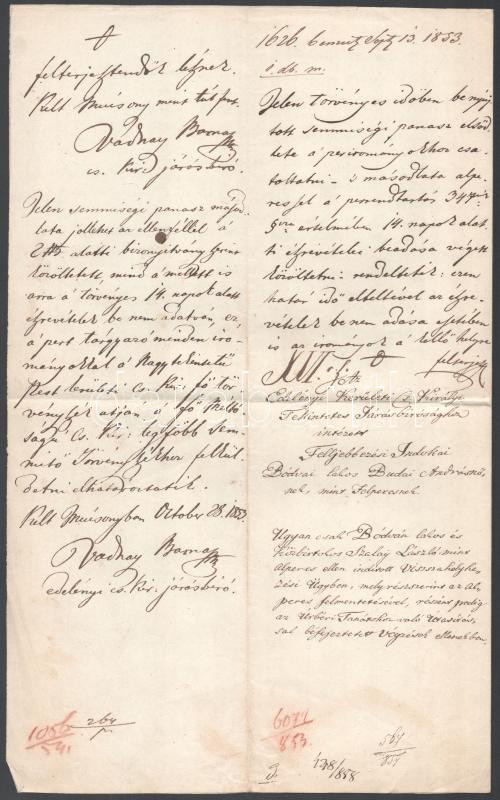 felterjesztendők lésznek.
Kelt Mucsony mint túl
Vadnay Barna
cs. kir. járásbiró.
Jelen semmiségi panasz másod
lata jóllehet az ellenféllel á
alatti bizonyitvány szerint
közöltetett mind a mellett is
arra á törvényes 14. napok alatt
észrevételek be nem adatván, ez,
a pert tárgyazó minden iro-
mányokkal á Nagy tekintetű
Pest kerületi Cs. Kir. fő tör
vényszék utján á fő
Cs. Kir. legfőbb Sem-
mitő Törvényszékhez felkül-
detni elhatároztatik.
Kelt Mucsonyban October 28. 1853.
Vadnay Barna
edelényi cs. kir. járásbiró.
1056
264
1626. Sept. 13. 1853.
1. db. m.
Jelen törvényes időben benyuj
tott semmiségi panasz első
lete a periromanyokhoz csa-
toltatni - s másodlata alpe-
ressel a perrendtartás 347
értelmében 14. napok alat
ti észrevételei beadása végett
közöltetni rendeltetik: ezen
határ idő elteltével az észre-
vételek be nem adása esetében
is az irományok á kellő helyre
XVI
Az
Edelényi Kerületi Cs. Királyi
Tekintetes Járásbirósághoz
intézett
Felljebbezési Indokai
Bódvai lakos Budai Andrásné-
nek, mint Felperesnek.
Ugyan csak Bódván lakos és
közbirtokos Szalay László mint
alperes ellen inditott Visszahelyhe-
zési Ügyben, mely részszerint az Al-
peres felmentetésével, részint pedig
az Urbéri Tanácshoz való Utasitás-
sal béfejeztetett Végzések ellenében.
6077
853.
564
857
138/858